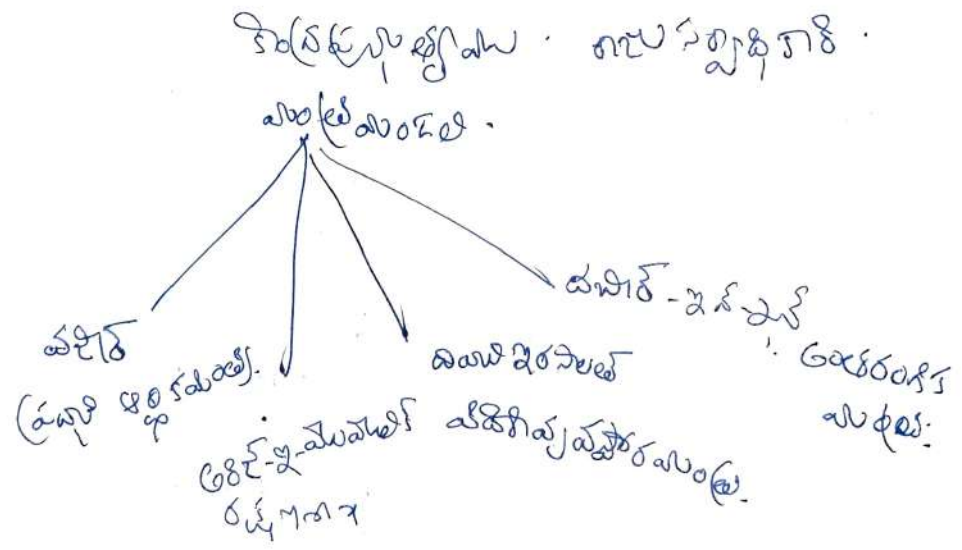 కేంద్రప్రభుత్వము . రాజు సర్వాధికారి .
మంత్రి మండలి .
వజీర్
(ప్రధాని ఆర్థికమంత్రి).
అరిజ్-ఇ-మొమాలిక్
రక్షణశాఖ
దివాని ఇరసాలత్
విదేశీవ్యవహారమంత్రి.
దబీర్-ఇన్-ఇన్
అంతరంగిక